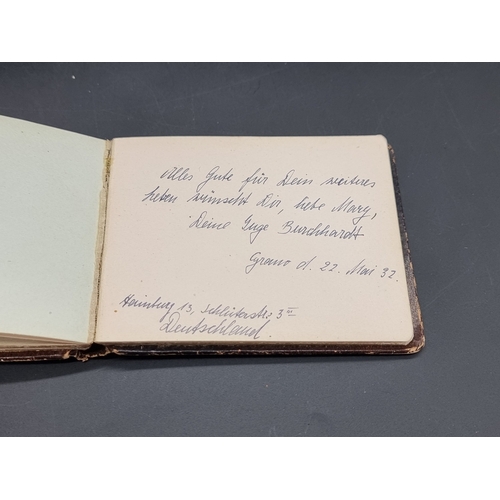 Alles Gute für Dein weiteres
Leben wünscht Dir, liebe Mary,
Deine Inge Burchhardt
d. 22. Mai 32.
Hamburg 13, Schlüterstr. 3 III
Deutschland.